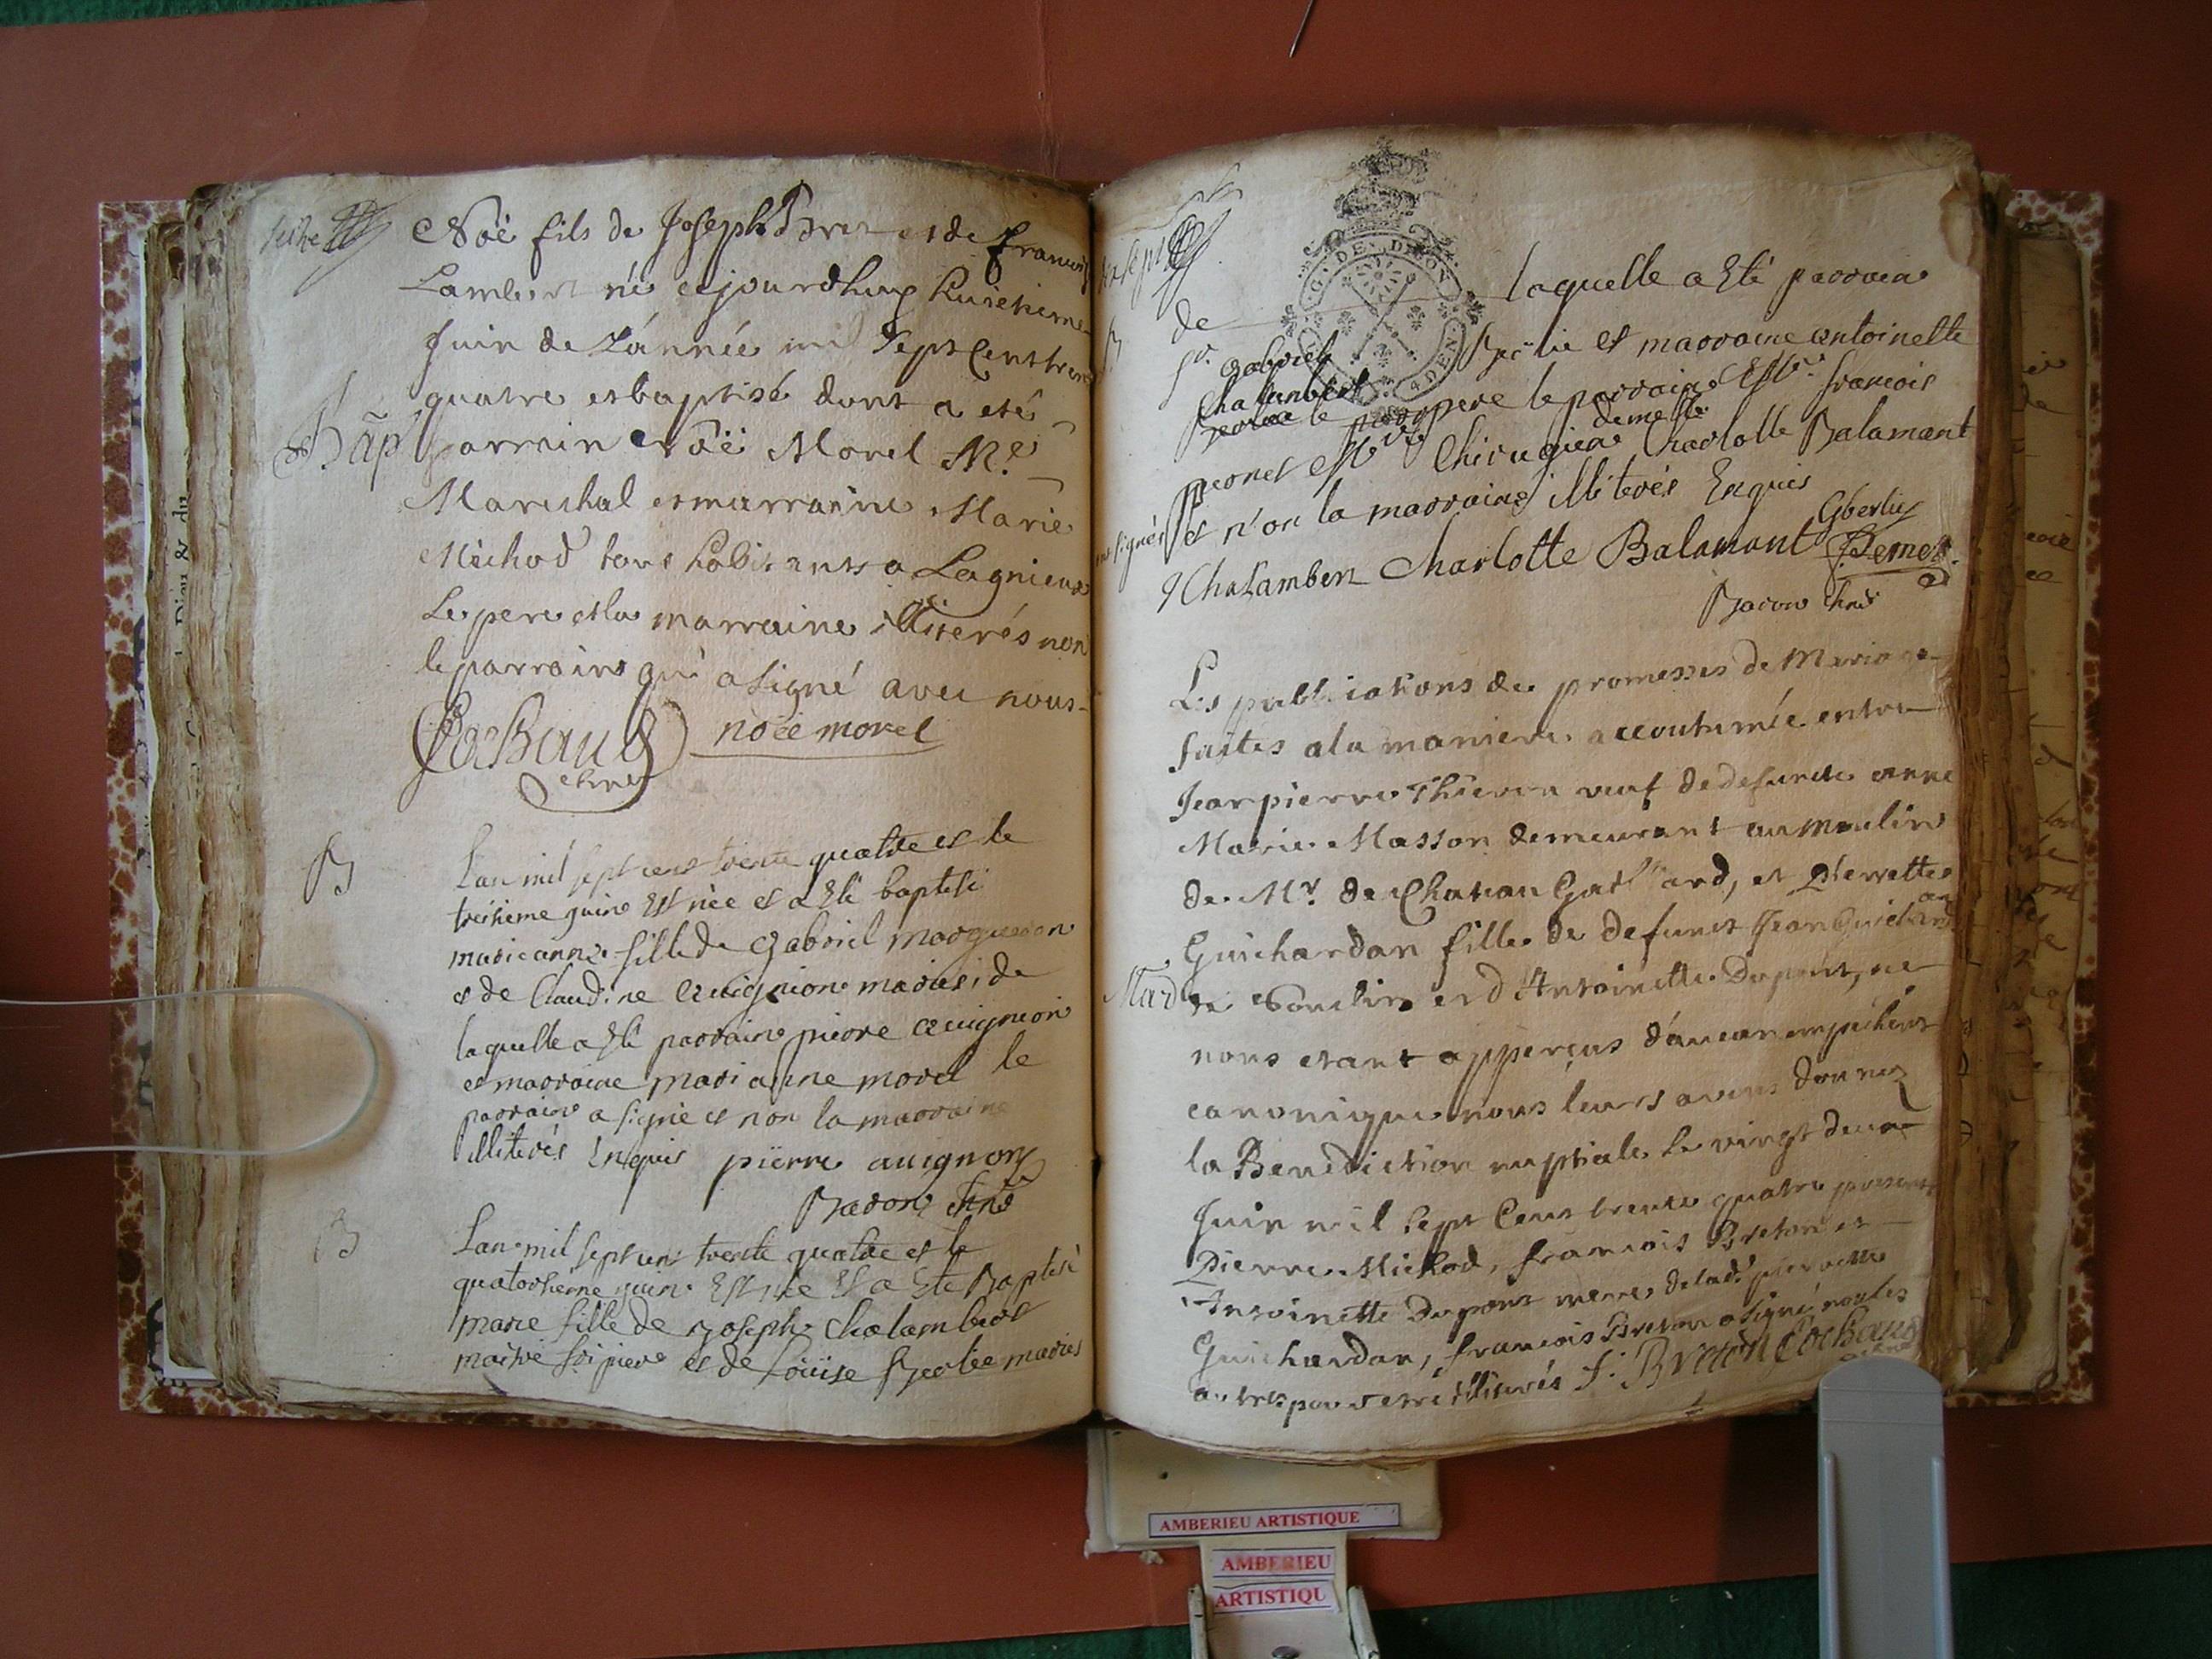 seize
Noë fils de Joseph Bret et de francoise
Lambert né cejourdhuy huitieme
Juin de L'année mil sept cent trente
quatre et baptisé dont a eté
Bap
parrain Noë Morel Me
Mareschal et marraine Marie
Michod tous habitants a Lagnieux
Le pere et la marraine illiterés non
le parrain qui a signé avec nous
Cochaud noëe morel
B
Lan mil sept cent trente quatre et le
treisieme juin Est née et a Eté baptisé
marie anne fille de gabriel
et de Claudine auignion mariés; de
laquelle a Eté parrain pierre auignion
et marraine marianne morel le
parrain a signé et non la marraine
illiterés Enquis pierre auignon
Baron
B
Lan mil sept cent trente quatre et le
quatorsieme juin Est née Et a Eté Baptisé
marie fille de joseph Chalambert
maitre et de Loüise mariés
de laquelle a Eté parrain
B
sr. gabriel et marraine antoinette
Chalambert
le pere le parrain francois
demelle
Chirugien Charlotte Balamant
et non la marraine illiterés Enquis
Chalamber Charlotte Balamant
Baron
G. DE. LYON
4 DEN.
Les publications des promesses de Mariage
faites a la maniere accoutumée entre
Jean pierre veuf de defuncte anne
Marie Masson demeurant au Moulin
de Mr. de Chateau Gaillard, et Pierrette
Guichardan fille de defunct Jean Guichardan
Mar
de et d'Antoinette Dupont, ne
nous etant apperçus d'aucun empechement
canonique nous leurs avons donnez
la Benediction nuptiale le vingt deux
Juin mil sept Cent trente quatre presents
Pierre Michod, francois Breton et
Antoinette Dupont mere de lad. pierrette
Guichardan, francois Breton a signé non les
autres pour etre illiterés f. Breton Cochaud
AMBERIEU ARTISTIQUE
AMBERIEU
ARTISTIQU